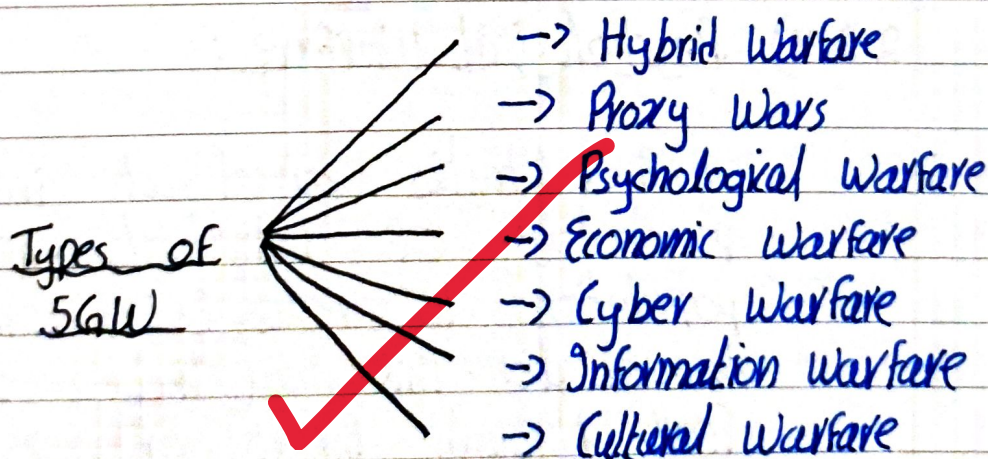 -> Hybrid Warfare
-> Proxy Wars
-> Psychological Warfare
Types of
-> Economic Warfare
5GW
-> Cyber Warfare
-> Information Warfare
-> Cultural Warfare